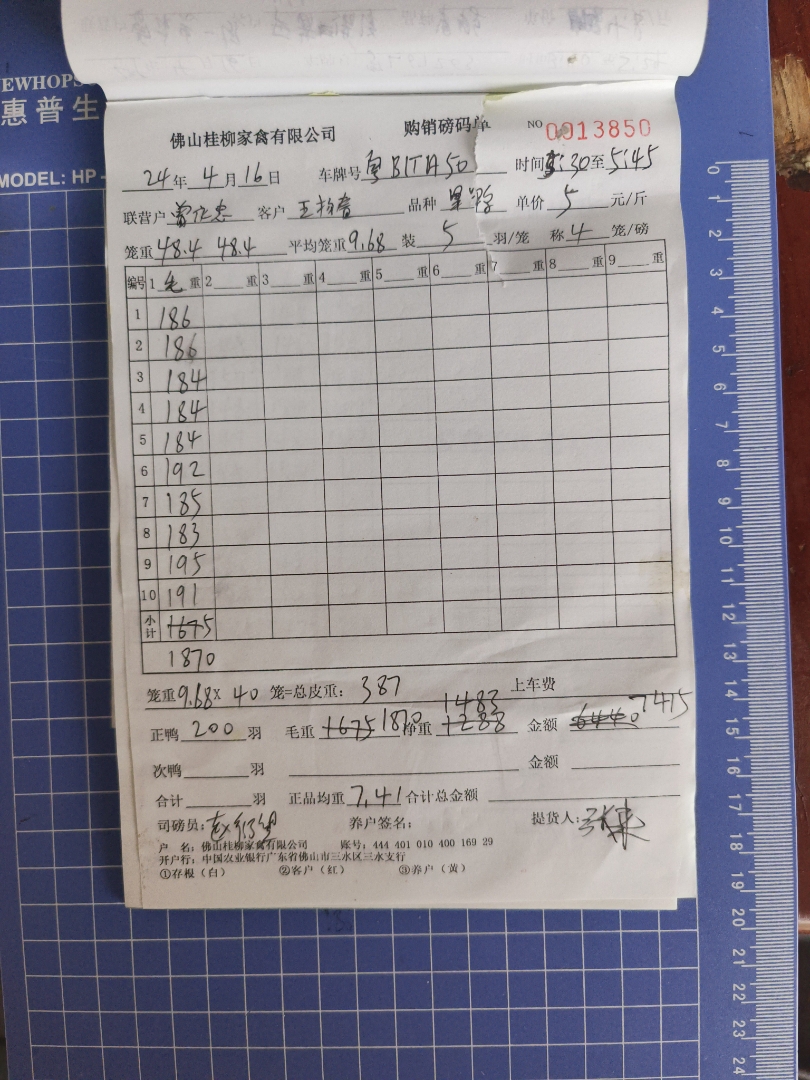 EWHOPS
惠普生
MODEL: HP-
佛山桂柳家禽有限公司 购销磅码单 NO 0013850
24年4月16日 车牌号粤B1TA50 时间5:30至5:45
联营户 客户 品种 单价 5 元/斤
笼重48.4 48.4 平均笼重9.68 装 5 羽/笼 称 4 笼/磅
编号 1 毛 重 2 重 3 重 4 重 5 重 6 重 7 重 8 重 9 重
1 186
2 186
3 184
4 184
5 184
6 192
7 185
8 183
9 195
10 191
小计 1675
1870
笼重9.68× 40 笼=总皮重: 387 上车费
正鸭 200 羽 毛重 1675 1870 净重 1288 1483 金额 6440 7415
次鸭 羽 金额
合计 羽 正品均重 7.41 合计总金额
司磅员: 养户签名: 提货人:
户 名: 佛山桂柳家禽有限公司 账号: 444 401 010 400 169 29
开户行: 中国农业银行广东省佛山市三水区三水支行
①存根(白) ②客户(红) ③养户(黄)
0
1
2
3
4
5
6
7
8
9
10
11
12
13
14
15
16
17
18
19
20
21
22
23
24